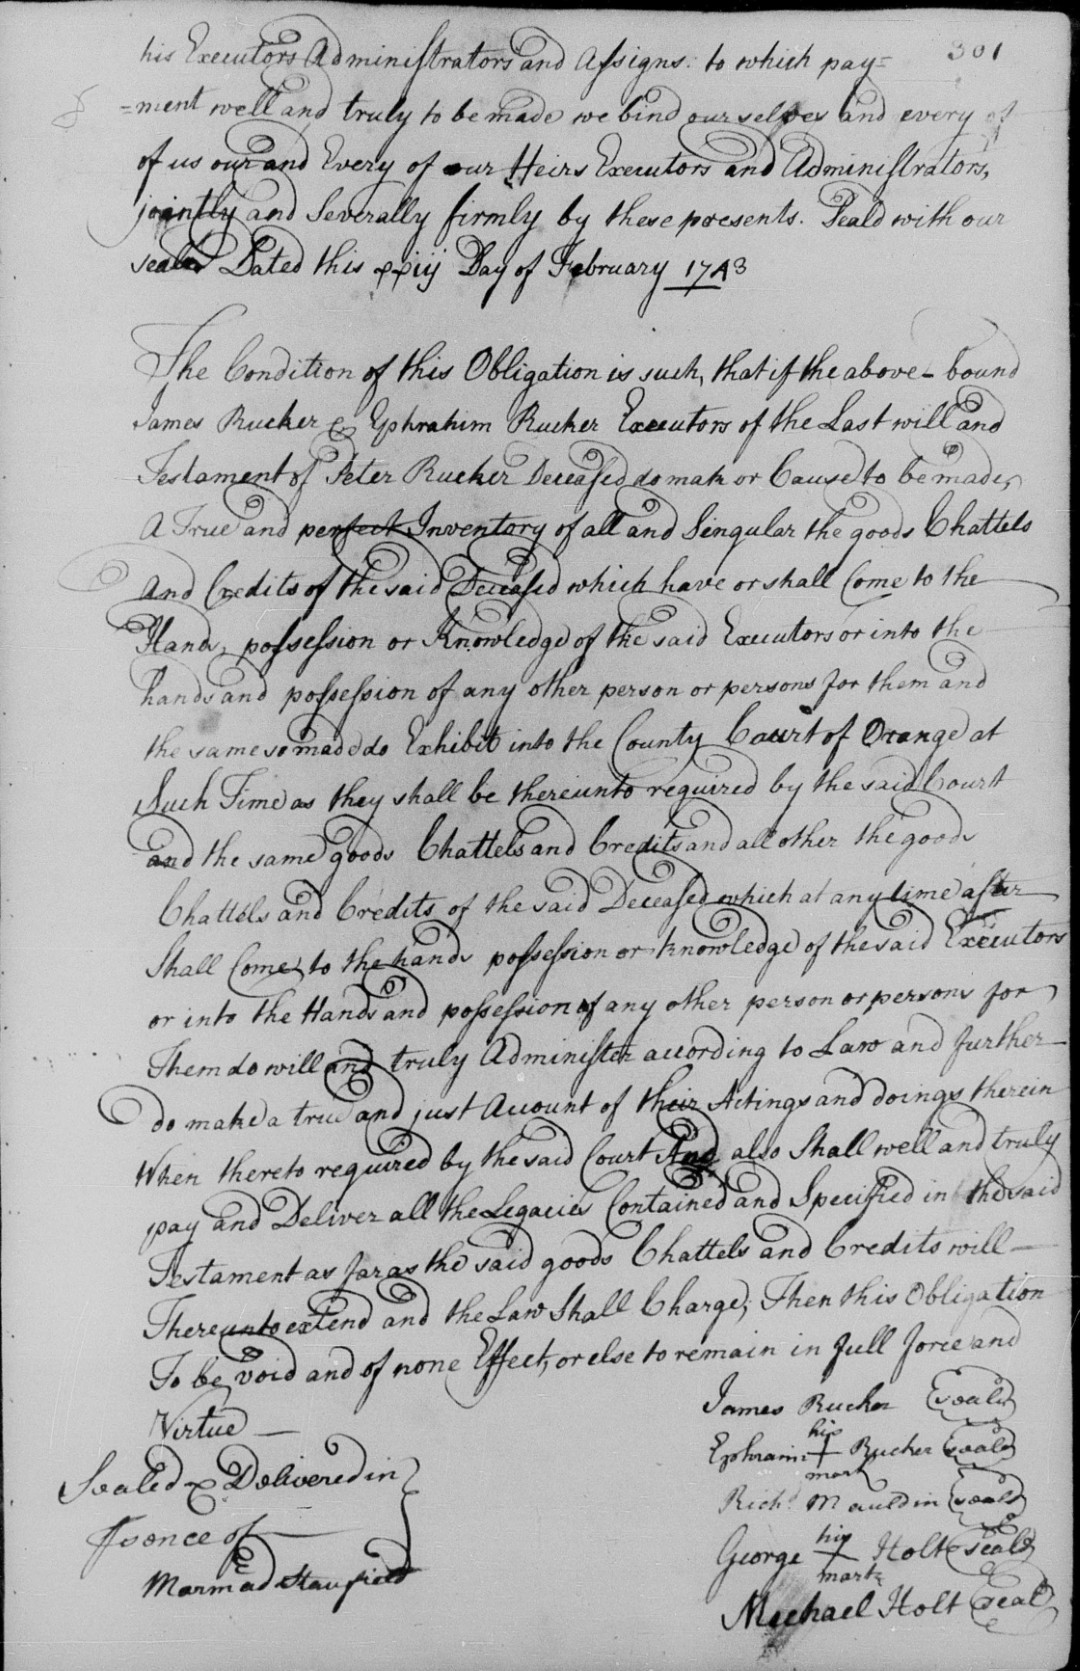 301
his Executors Administrators and Assigns: to which pay=
=ment well and truly to be made we bind our selves and every of
of us our and Every of our Heirs Executors and Administrators,
jointly and Severally firmly by these presents. Seald with our
seales Dated this xxiij Day of February 1743
The Condition of this Obligation is such, that if the above-bound
James Rucker & Ephrahim Rucker Executors of the Last will and
Testament of Peter Rucker Deceased do mak or Cause to be made,
A True and perfect Inventory of all and Singular the goods Chattels
And Credits of the said Deceased which have or shall Come to the
Hands, possession or Knowledge of the said Executors or into the
hands and possession of any other person or persons for them and
the same so made do Exhibit into the County Court of Orange at
Such Time as they shall be thereunto required by the said Court
and the same goods Chattels and Credits and all other the goods
Chattels and Credits of the said Deceased which at any time after
Shall Come to the hands possession or knowledge of the said Executors
or into the Hands and possession of any other person or persons for
Them do will and truly Administer according to Law and further
do make a true and just Account of their Actings and doings therein
When thereto required by the said Court And also Shall well and truly
pay and Deliver all the Legacies Contained and Specified in the said
Testament as far as the said goods Chattels and Credits will
Thereunto extend and the Law Shall Charge; Then this Obligation
To be void and of none Effect, or else to remain in full force and
Virtue
James Rucker (seal)
Ephraim his + mark Rucker (seal)
Richd. Mauldin (seal)
George his + mark Holt (seal)
Michael Holt (Seal)
Sealed & Delivered in
Psence of
Marmad Stanfield